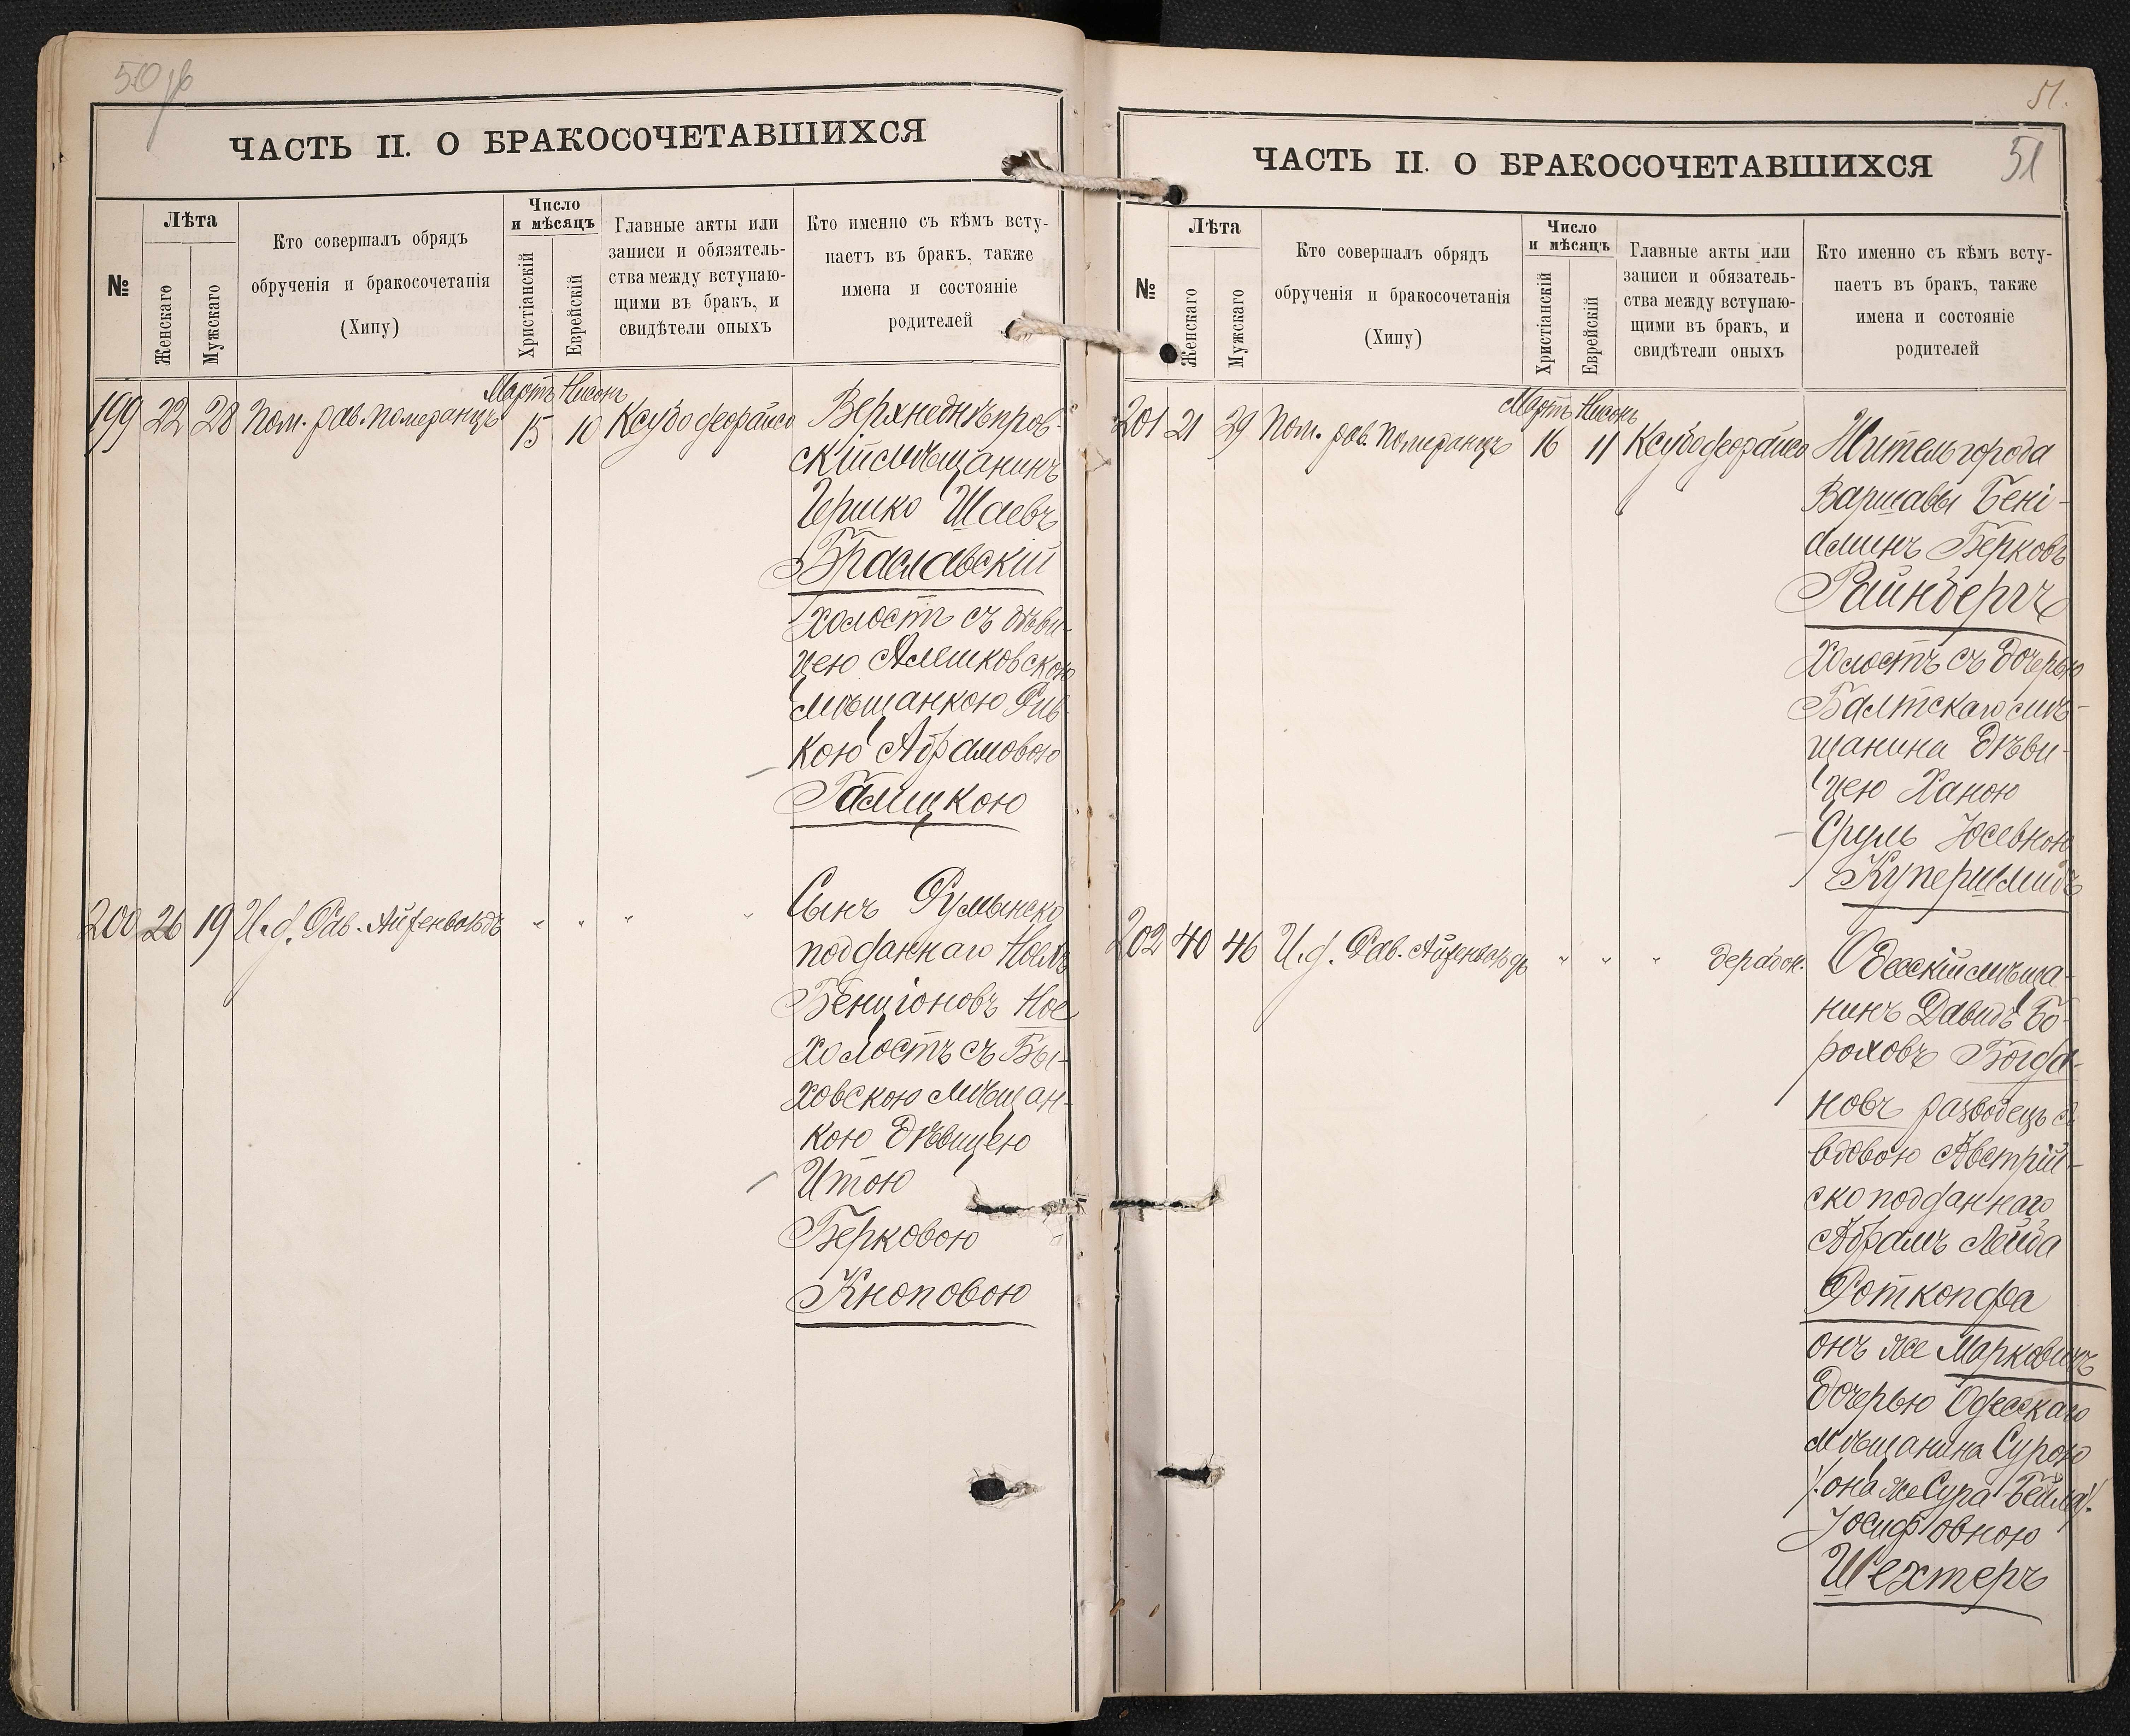 50 об
ЧАСТЬ II. О БРАКОСОЧЕТАВШИХСЯ
№
Лѣта
Женскаго
Мужскаго
Кто совершалъ обрядъ
обрученія и бракосочетанія
(Хипу)
Число
и мѣсяцъ
Христіанскій
Еврейскій
Главные акты или
записи и обязятель-
ства между вступаю-
щими въ бракъ, и
свидѣтели оныхъ
Кто именно съ кѣмъ всту-
паетъ въ бракъ, также
имена и состояніе
родителей
Мартъ Нисонъ
199 22 28 Пом. рав. Померанцъ 15 10 Ксубо деорайсо Верхнеднѣпров-
скій мѣщанинъ
Гершко Шаевъ
Браславскій
холостъ съ дѣви-
цею Алешковскою
мѣщанкою Рив-
кою Абрамовою
Галицкою
200 26 19 И. д. Рав. Айзенвальдъ " " " " Сынъ Румынско
подданнаго
Бенціоновъ Ное
холостъ съ Бы-
ховскою мѣщан-
кою дѣвицею
Итою
Берковою
Кноповою
51.
51
ЧАСТЬ II. О БРАКОСОЧЕТАВШИХСЯ
№
Лѣта
Женскаго
Мужскаго
Кто совершалъ обрядъ
обрученія и бракосочетанія
(Хипу)
Число
и мѣсяцъ
Христіанскій
Еврейскій
Главные акты или
записи и обязатель-
ства между вступаю-
щими въ бракъ, и
свидѣтели оныхъ
Кто именно съ кѣмъ всту-
паетъ въ бракъ, также
имена и состояніе
родителей
Мартъ Нисонъ
201 21 29 Пом. рав. Померанцъ 16 11 Ксубо деорайсо Житель города
Варшавы Бені-
аминъ Берковъ
Райнбергъ
Холостъ съ дочерью
Балтскаго мѣ-
щанина дѣви-
цею Ханою
Сруль Юсевною
Купершмидъ
202 40 46 И. д. Рав. Айзенвальдъ " " " дерабон. Одесскій мѣща-
нинъ Давидъ Бо-
роховъ Богда-
новъ разводецъ съ
вдовою Австрій-
ско подданнаго
Абрамъ Лейба
Роткопфа
онъ же Марковичъ
дочерью Одесскаго
мѣщанина Сурою
/. она же Сура Бейла /.
Іосифовною
Шехтеръ